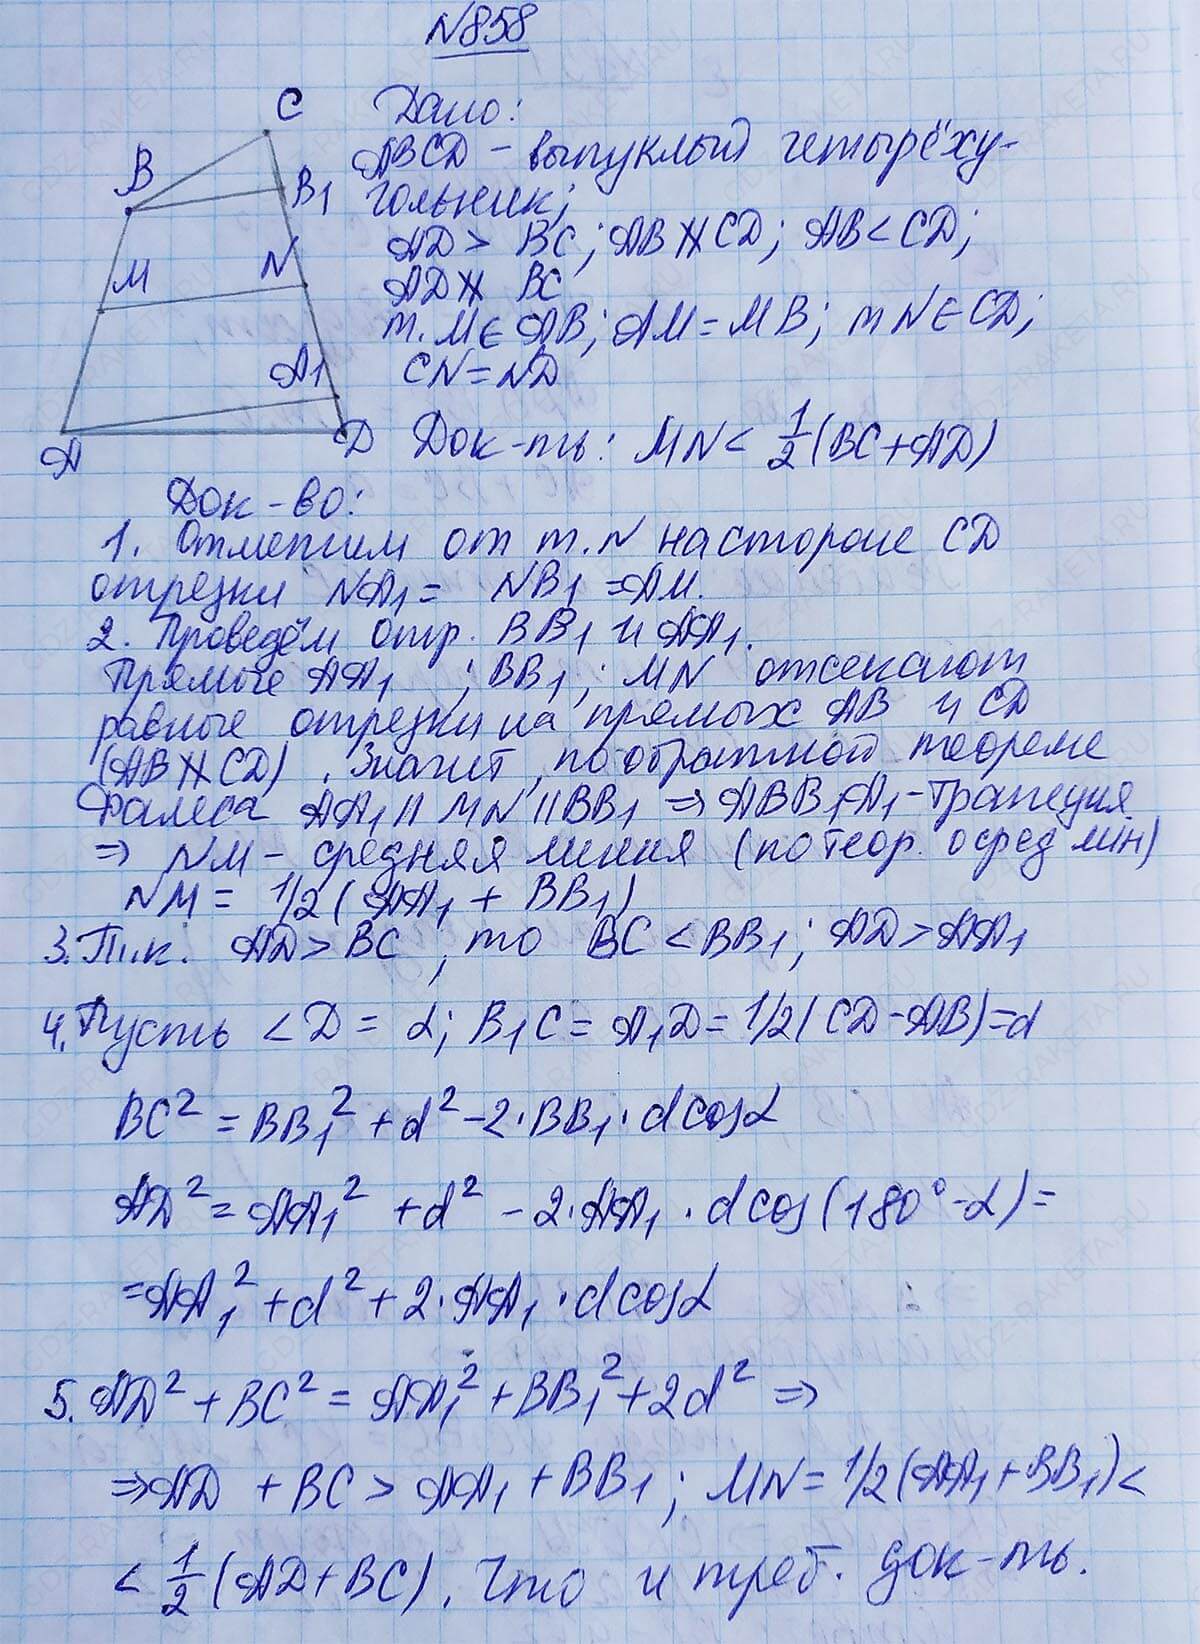 N858
C
B
B1
M
N
A1
A
D
Дано:
ABCD - выпуклый четырёху-
гольник;
AD > BC; AB ∦ CD; AB < CD;
AD ∦ BC
т. M ∈ AB; AM = MB; т N ∈ CD;
CN = ND
Док-ть: MN < 1/2 (BC + AD)
Док-во:
1. Отметим от т. N на стороне CD
отрезки NA1 = NB1 = AM.
2. Проведём отр. BB1 и AA1.
Прямые AA1 ; BB1; MN отсекают
равные отрезки на прямых AB и CD
(AB ∦ CD). Значит, по обратной теореме
Фалеса AA1 || MN || BB1 ⇒ ABB1A1 - трапеция
⇒ NM - средняя линия (по теор. о сред лин)
NM = 1/2 (AA1 + BB1)
3. Т.к. AD > BC, то BC < BB1; AD > AA1
4. Пусть ∠D = α; B1C = A1D = 1/2 (CD - AB) = d
BC² = BB1² + d² - 2·BB1·d cosα
AD² = AA1² + d² - 2·AA1·d cos(180° - α) =
= AA1² + d² + 2·AA1·d cosα
5. AD² + BC² = AA1² + BB1² + 2d² ⇒
⇒ AD + BC > AA1 + BB1; MN = 1/2 (AA1 + BB1) <
< 1/2 (AD + BC). Что и треб. док-ть.